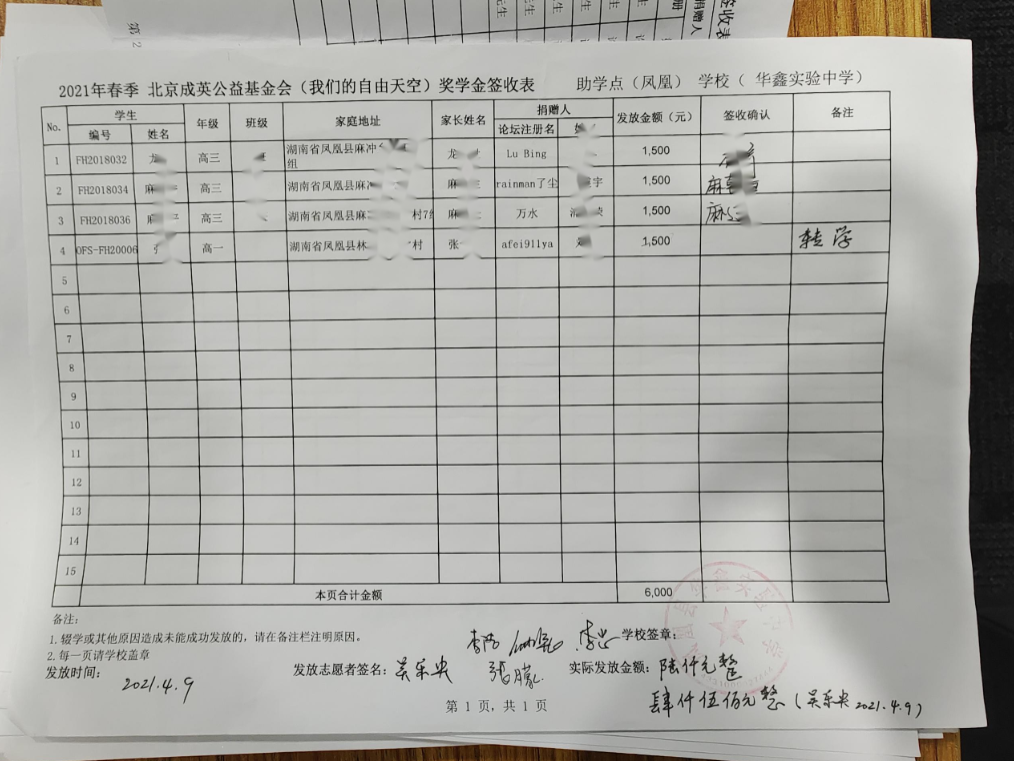 2021年春季 北京成英公益基金会（我们的自由天空）奖学金签收表 助学点（凤凰） 学校（ 华鑫实验中学）
No. 学生 年级 班级 家庭地址 家长姓名 捐赠人 发放金额（元） 签收确认 备注
编号 姓名 论坛注册名
1 FH2018032 龙 高三 湖南省凤凰县麻冲 组 龙 Lu Bing 1,500
2 FH2018034 麻 高三 湖南省凤凰县麻冲 麻 rainman了尘 宇 1,500 麻
3 FH2018036 麻 高三 湖南省凤凰县麻 村7组 麻 万水 1,500 麻
4 OFS-FH20006 张 高一 湖南省凤凰县林 村 张 afei911ya 1,500 转学
5
6
7
8
9
10
11
12
13
14
15
本页合计金额 6,000
备注：
1. 辍学或其他原因造成未能成功发放的，请在备注栏注明原因。
2. 每一页请学校盖章
学校签章：
发放时间： 2021.4.9 发放志愿者签名： 吴乐央 实际发放金额： 陆仟元整
肆仟伍佰元整（吴乐央 2021.4.9）
第 1 页，共 1 页